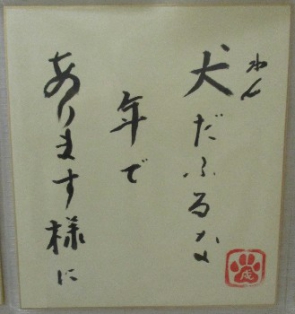 犬だふるな
わん
年で
あります様に